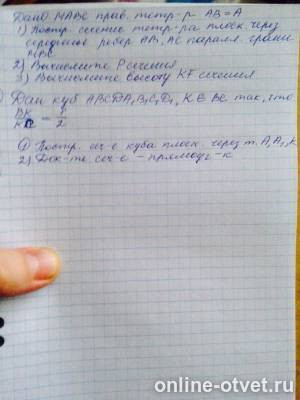 Дано MABC прав. тетр-р AB = A
1) Постр. сечение тетр-ра плоск. через
середины ребер AB, AC паралл. грани
MBC
2) Вычислите P сечения
3) Вычислите высоту KF сечения.
Дан куб ABCDA₁B₁C₁D₁, K ∈ BC так, что
BK
K = 1
2
① Постр. сеч-е куба плоск. через т. A, A₁, K
2) Док-те, сеч-е – прямоуг-к
online-otvet.ru